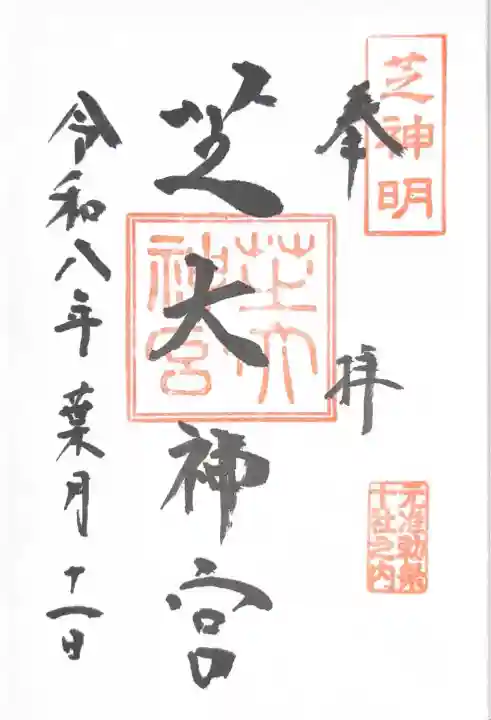 芝神明
奉拝
元准勅祭
十社之内
芝大神宮
芝大
神宮
令和八年葉月十一日